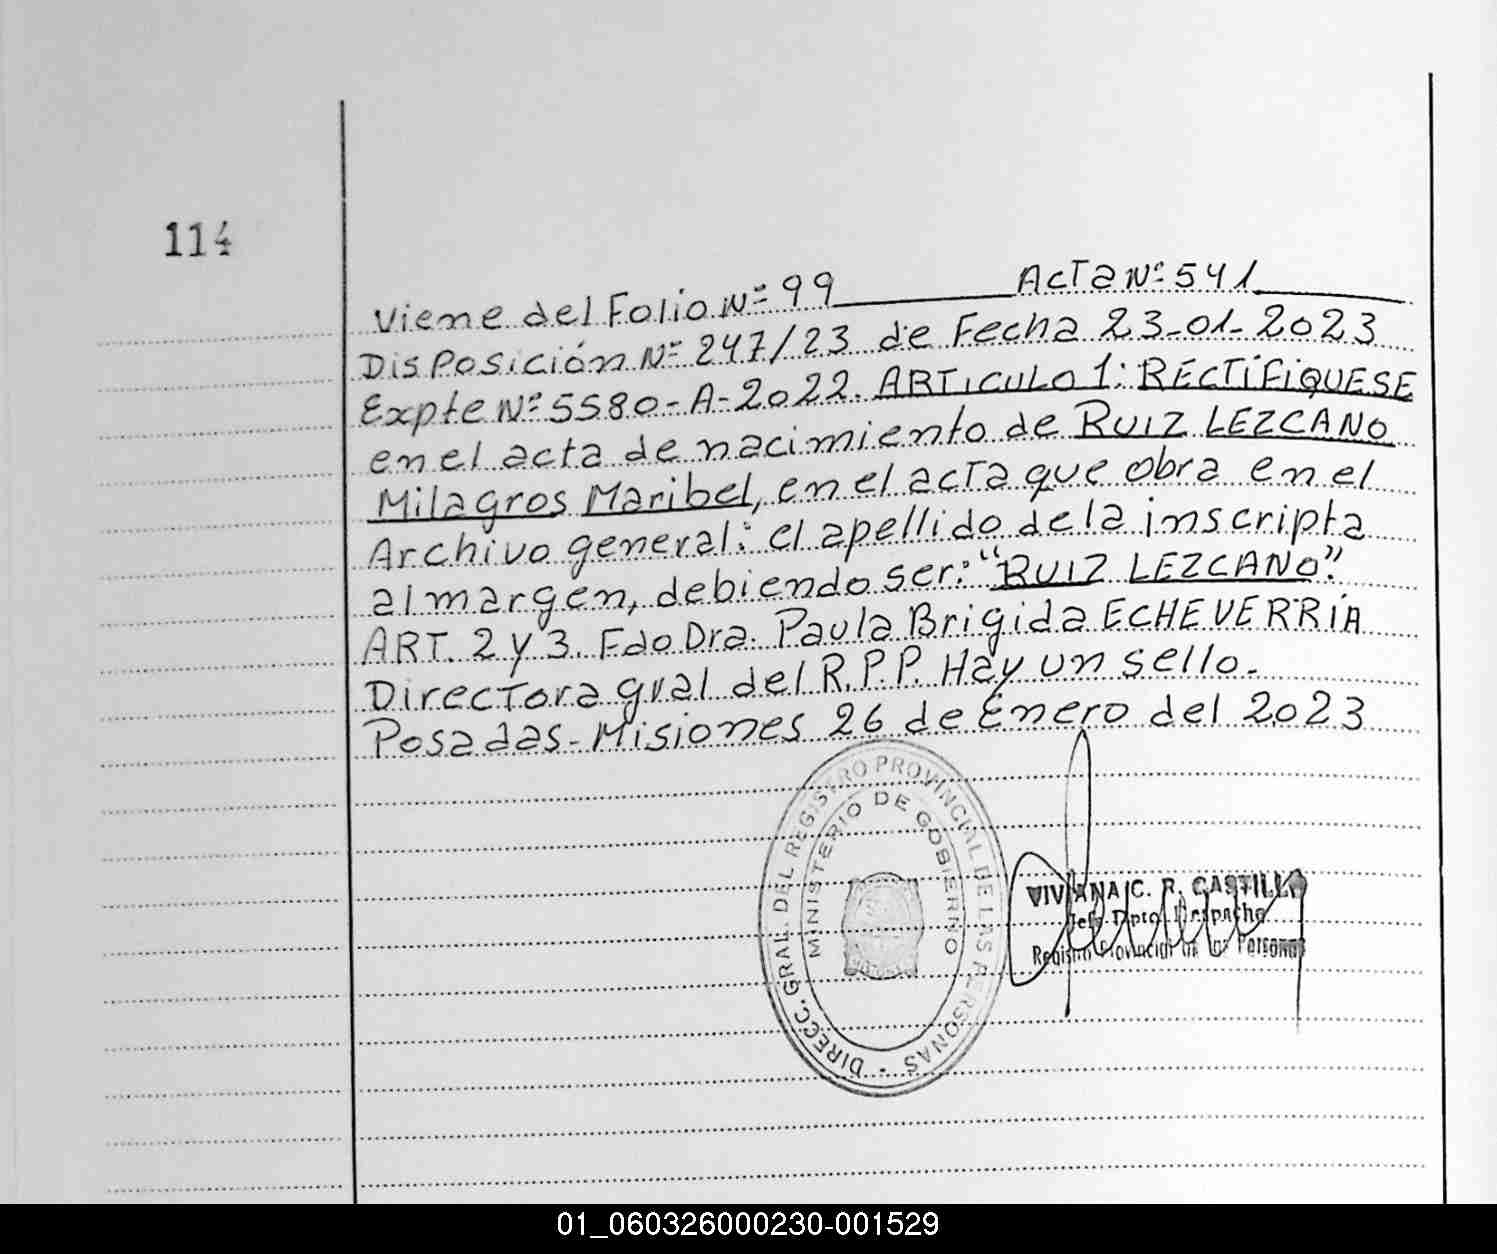 114
Viene del Folio Nº 99 Acta Nº 541
Disposición Nº 247/23 de Fecha 23-01-2023
Expte Nº 5580-A-2022. ARTICULO 1: RECTIFIQUESE
en el acta de nacimiento de RUIZ LEZCANO
Milagros Maribel, en el acta que obra en el
Archivo general: el apellido de la inscripta
al margen, debiendo ser: "RUIZ LEZCANO".
ART. 2 y 3. Fdo Dra. Paula Brigida ECHEVERRÍA
Directora gral del R.P.P. Hay un sello.
Posadas-Misiones 26 de Enero del 2023
DIRECC. GRAL. DEL REGISTRO PROVINCIAL DE LAS PERSONAS -
MINISTERIO DE GOBIERNO
VIVIANA C. R. CASTILLO
Jefe Dpto. Despacho
Registro Provincial de las Personas
01_060326000230-001529